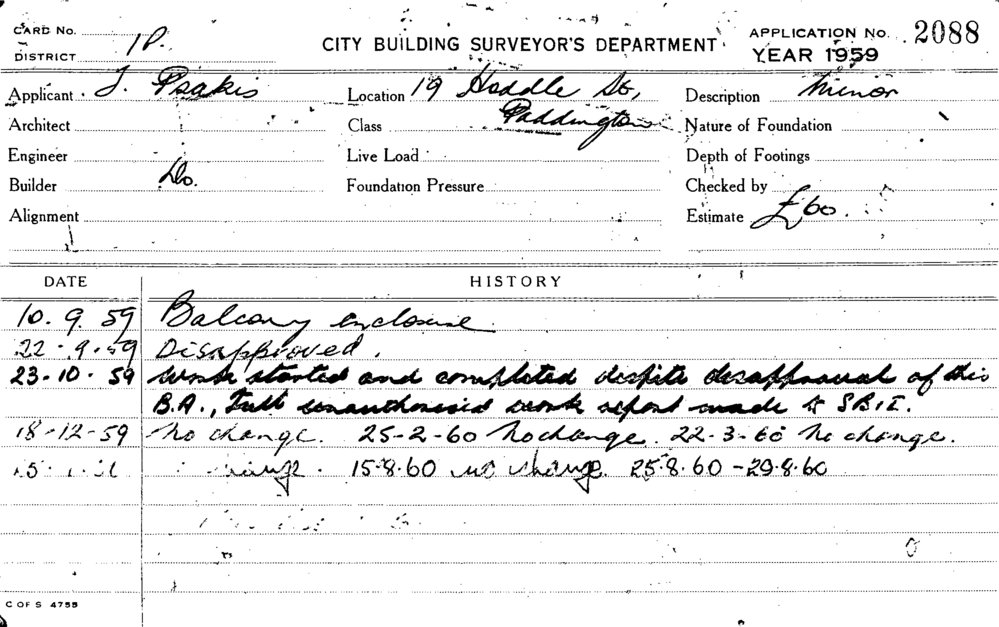 CARD No.
DISTRICT 1P.
CITY BUILDING SURVEYOR'S DEPARTMENT
APPLICATION No. 2088
YEAR 1959
Applicant J. Psakis Location 19 Hoddle St, Description Minor
Architect Class Paddington Nature of Foundation
Engineer Live Load Depth of Footings
Builder Do. Foundation Pressure Checked by
Alignment Estimate £60.
DATE HISTORY
10.9.59 Balcony enclosure.
22-9-59 Disapproved.
23-10-59 Work started and completed despite disapproval of this
B.A., Full unauthorised work report made to SBII.
18-12-59 No change. 25-2-60 No change. 22-3-60 No change.
change. 15.8.60 no change. 25.8.60-29.8.60
C OF S 4755